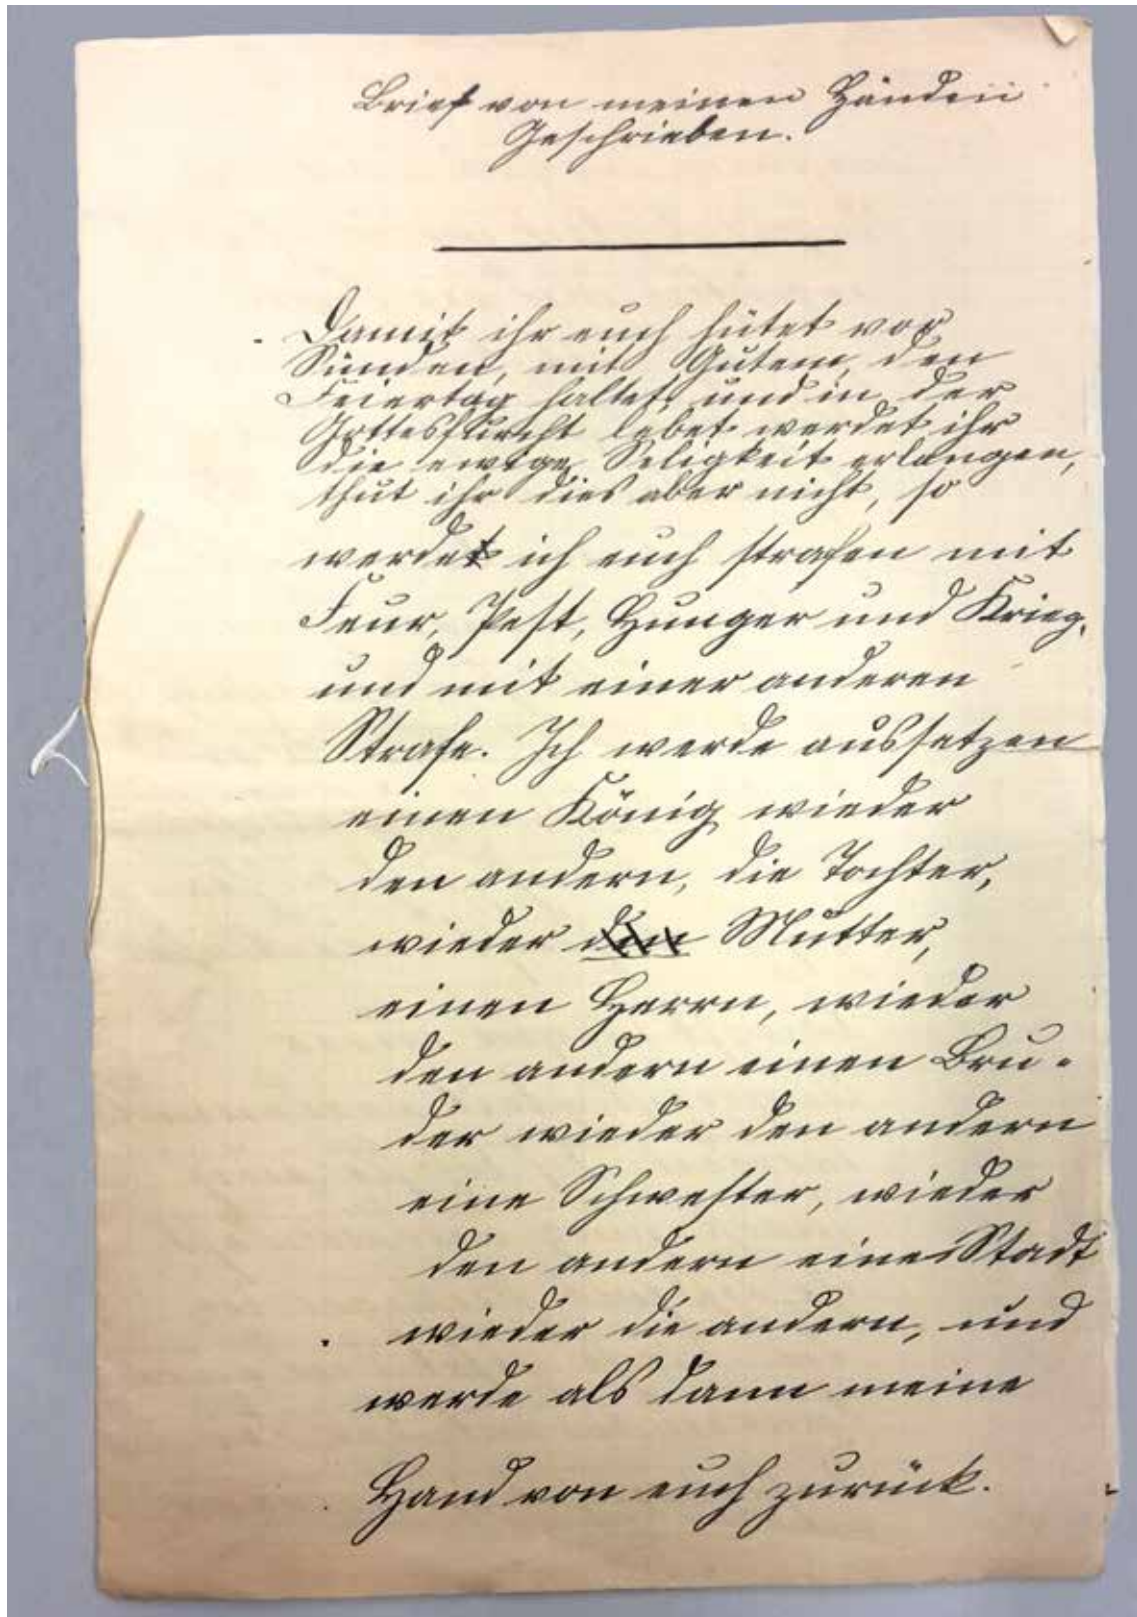 Brief von meinen Händen
Geschrieben.
Damit ihr euch hütet vor
Sünden, mit Gutem, den
Feiertag haltet, und in der
Gottesfurcht lebet werdet ihr
die ewige Seligkeit erlangen,
thut ihr dies aber nicht, so
werde ich euch strafen mit
Feur, Pest, Hunger und Krieg,
und mit einer anderen
Strafe. Ich werde aussetzen
einen König wieder
den andern, die Tochter,
wieder Mutter,
einen Herrn, wieder
den andern einen Bru-
der wieder den andern
eine Schwester, wieder
den andern eine Stadt
wieder die andern, und
werde als dann meine
Hand von euch zurück.